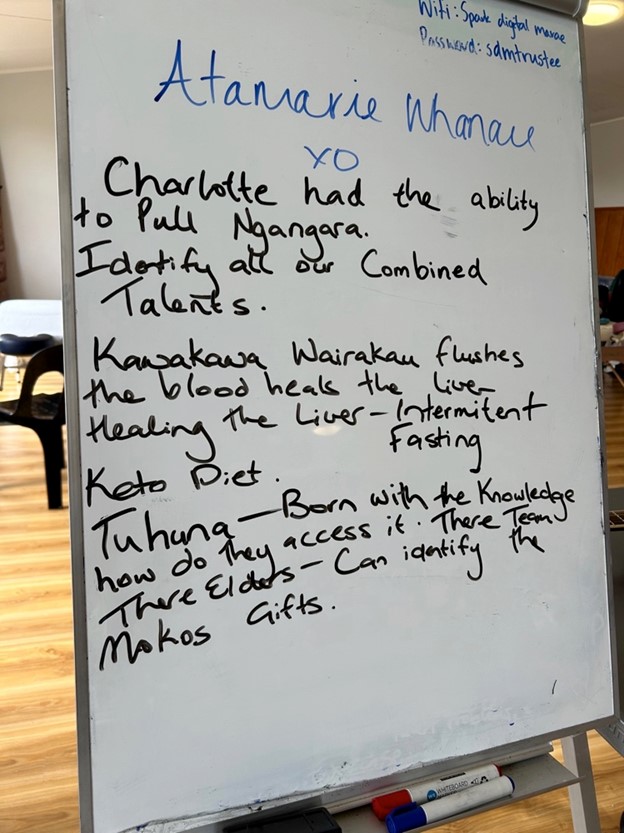 Wifi: Spark digital marae
Password: sdmtrustee
Atamarie Whanau
XO
Charlotte had the ability
to Pull Ngangara.
Identify all our Combined
Talents.
Kawakawa Wairakau flushes
the blood heals the Liver
Healing the Liver - Intermitent
Fasting
Keto Diet.
Tuhuna - Born with the Knowledge
how do they access it. There Team
There Elders - Can identify the
Mokos Gifts.
WHITEBOARD